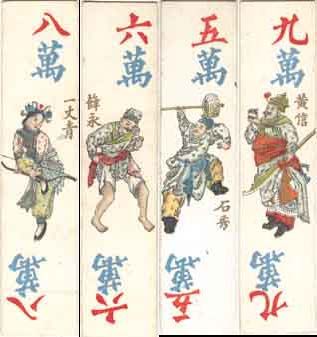 八
萬
一丈青
萬
八
六
萬
薛永
萬
六
五
萬
石秀
萬
五
九
萬
黃信
萬
九